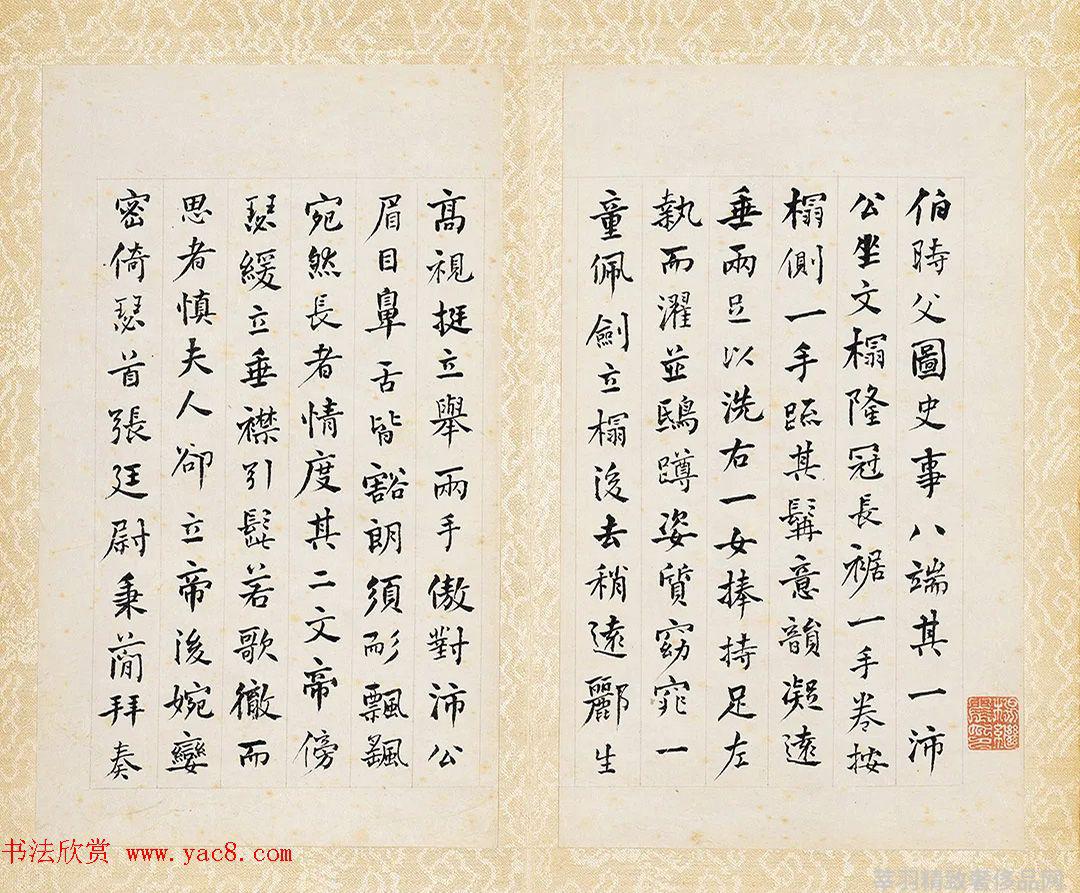 伯時父圖史事八端其一沛
公坐文榻隆冠長裾一手卷按
榻側一手䟽其髯意韻凝遠
垂兩足以洗右一女捧持足左
執而濯並鴟蹲姿質窈窕一
童佩劍立榻後去稍遠酈生
高視挺立舉兩手傲對沛公
眉目鼻舌皆豁朗須耏飄颻
宛然長者情度其二文帝傍
瑟緩立垂襟引髭若歌徹而
思者慎夫人卻立帝後婉孌
密倚瑟首張廷尉秉蕳拜奏
书法欣赏 www.yac8.com